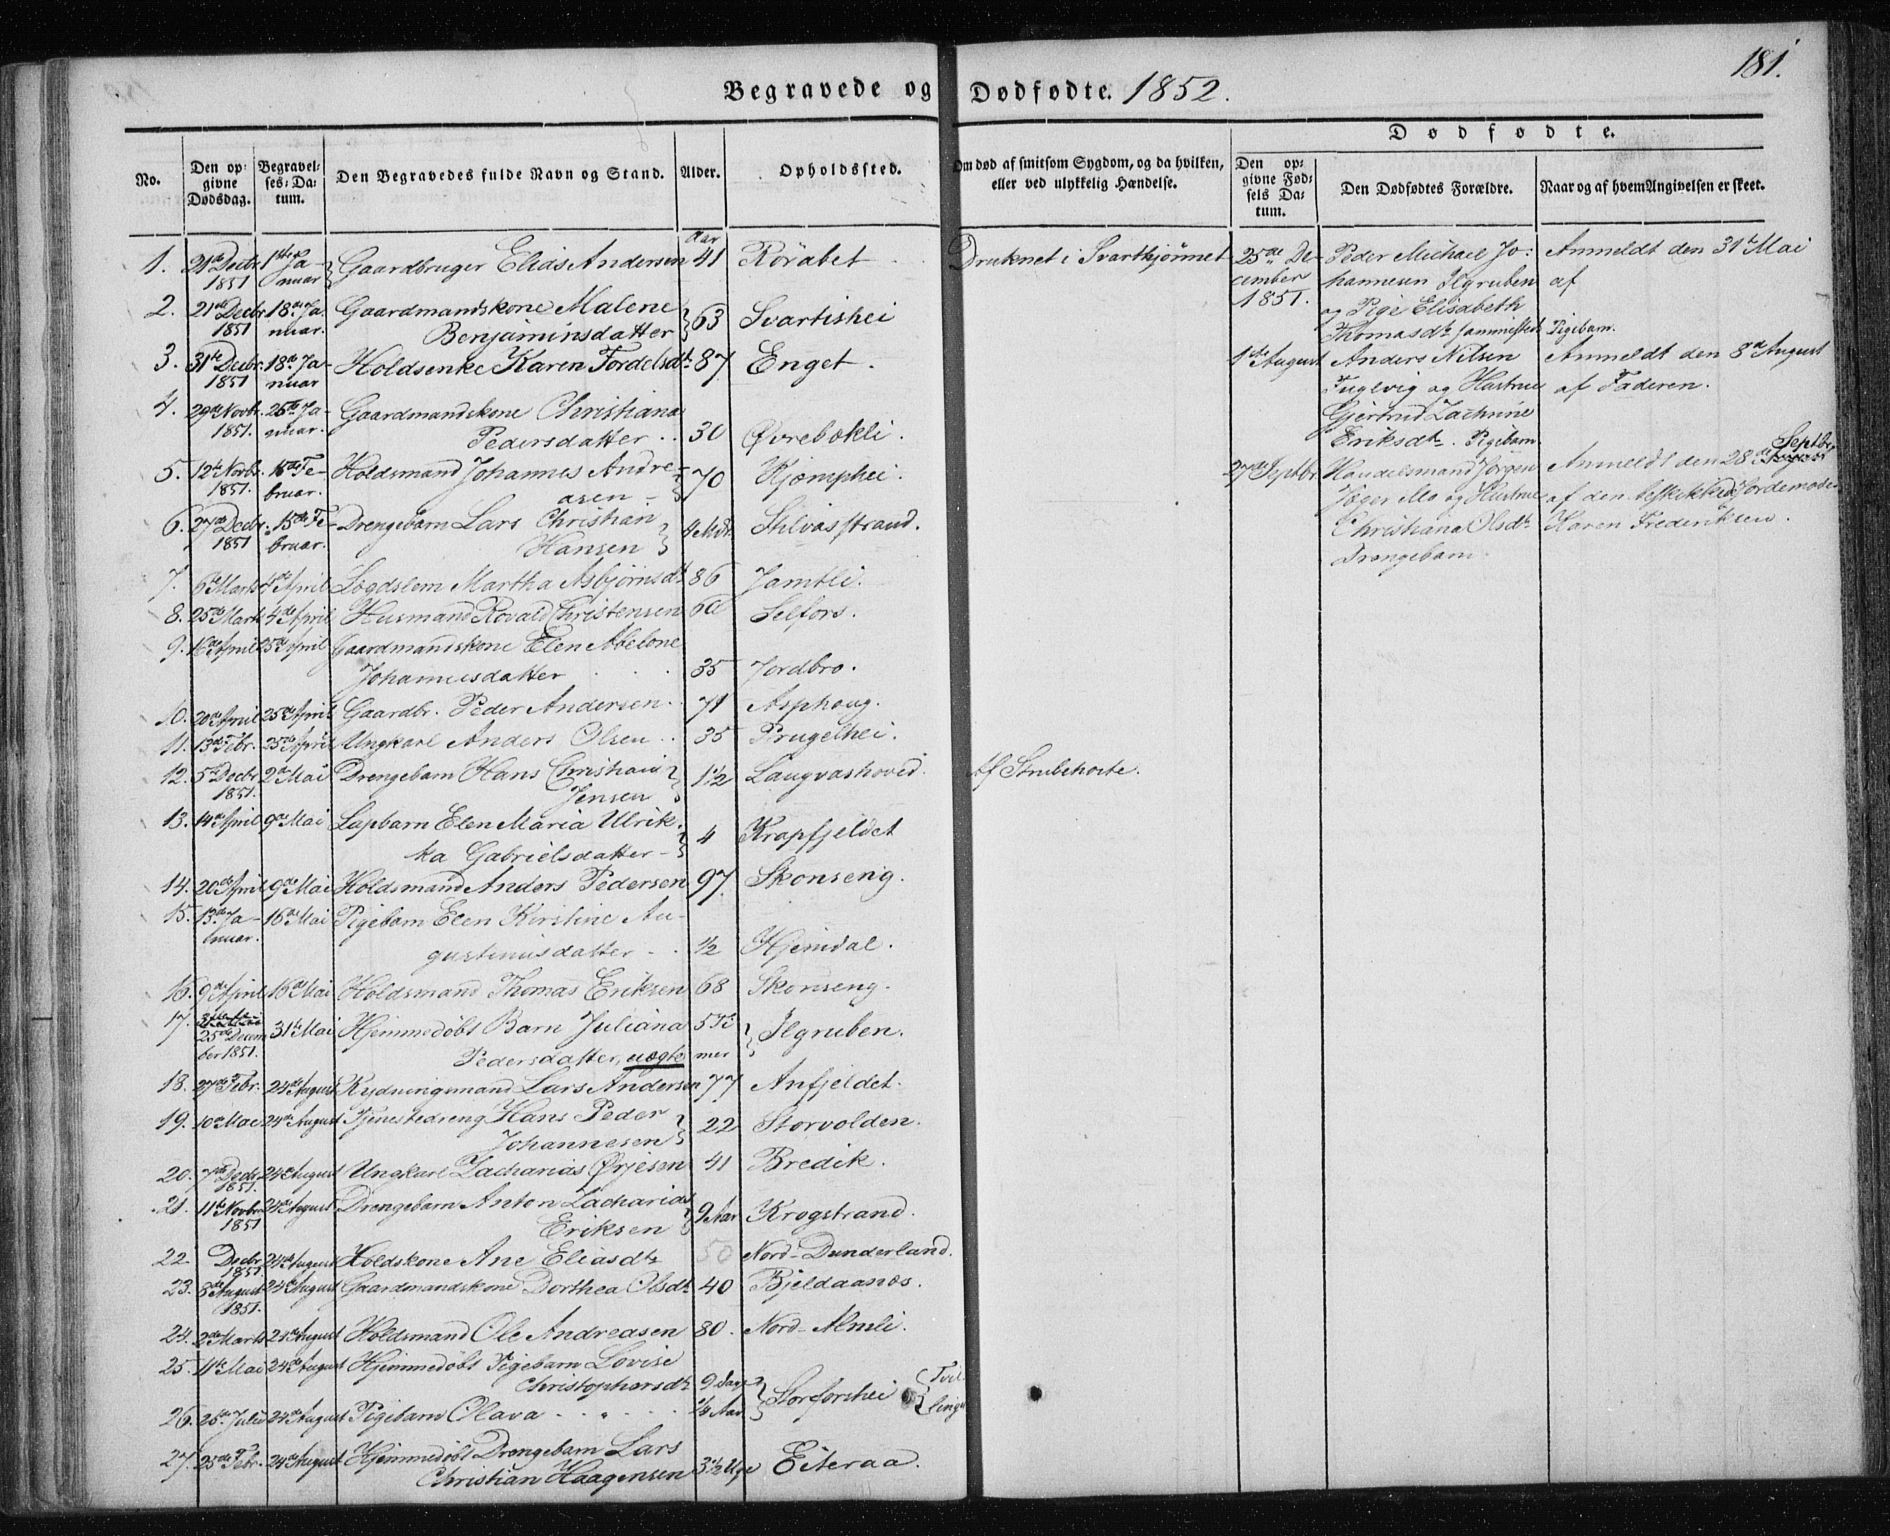 181.
Begravede og Dødfødte. 1852.
Dødfødte.
No.
Den opgivne Dødsdag.
Begravelses-Datum.
Den Begravedes fulde Navn og Stand.
Alder.
Opholdssted.
Om død af smitsom Sygdom, og da hvilken, eller ved ulykkelig Hændelse.
Den opgivne Fødsels Datum.
Den Dødfødtes Forældre.
Naar og af hvem Angivelsen er skeet.
1. 21de Decbr. 1851 1ste Januar Gaardbruger Elias Andersen Aar 41 Rørabet Druknet i Svarttjønnet
2. 21de Decbr. 1851 18de Januar. Gaardmandskone Malene
Benjaminsdatter 63 Svartishei
3. 31te Decbr. 1851 18de Januar Holdsenke Karen Tordelsdt. 87 Enget.
4. 29de Novbr. 1851. 25de Januar. Gaardmandskone Christiana
Pedersdatter .. 30 Øvrebækli.
5. 12te Novbr. 1851. 15de Februar. Holdsmand Johannes Andre-
asen 70 Kjæmphei.
6. 27de Decbr. 1851 15de Februar. Drengebarn Lars Christian
Hansen 4 Mdr. Stilvasstrand.
7. 6te Marts 4de April Lægdslem Martha Asbjørnsdt. 86 Jamtli.
8. 25de Marts 4de April Husmand Rovald Christensen 60 Selfors.
9. 16de April 25de April Gaardmandskone Elen Abelone
Johannesdatter 35 Jordbro.
10. 20de April 25de April Gaardbr. Peder Andersen. 71 Asphoug.
11. 13de Febr. 25de April Ungkarl Anders Olsen .. 35 Prugelhei.
12. 5te Decbr. 1851. 2den Mai Drengebarn Hans Christian
Jensen 1½ Langvashoved. Af Strubehoste.
13. 14de April 9de Mai Lapbarn Elen Maria Ulrik-
ka Gabrielsdatter 4 Krapfjeldet
14. 20de April 9de Mai Holdsmand Anders Pedersen 97 Skonseng.
15. 13de Januar. 16de Mai Pigebarn Elen Kirstine Au-
gustinusdatter .. ½ Hjemdal.
16. 9de April 16de Mai Holdsmand Thomas Eriksen 68 Skonseng.
17. 25de December 1851. 31te Mai Hjemmedøbt Barn Juliana
Pedersdatter, uægte 5 Timer Ilgruben.
18. 27de Febr. 24de August Rydningsmand Lars Andersen 77 Anfjeldet.
19. 10de Mai 24de August Tjenestedreng Hans Peder
Johannesen 22 Storvolden.
20. 7de Decbr. 1851. 24de August Ungkarl Zacharias Ørjesen 41 Bredik.
21. 11te Novbr. 1851 24de August Drengebarn Anton Zacharias
Eriksen 9 Aar Krogstrand.
22. Decbr. 1851 24de August Holdskone Ane Eliasdt. 50 Nord-Dunderland.
23. 8de August 1851. 24de August Gaardmandskone Dorthea Olsdt. 40 Bjeldaanæs.
24. 2de Marts 24de August Holdsmand Ole Andreasen 80. Nord-Almli.
25. 11te Mai 24de August Hjemmedøbt Pigebarn Lovise
Christophersdt. 9 Dage Storforshei Tvil-
26. 25de Juli 24de August Pigebarn Olava ¼ Aar linger
27. 23de Febr. 24de August Hjemmedøbt Drengebarn Lars
Christian Haagensen 3½ Uge Eiteraa.
25de December 1851. Peder Michael Jo-
hannesen Ilgruben
og Pige Elisabeth
Thomasdt. sammesteds Pigebarn.
Anmeldt den 31te Mai
af
1ste August Anders Nilsen
Fuglvig og Hustrue
Gjertrud Zachrine
Eriksdt. Pigebarn.
Anmeldt den 8de August
af Faderen.
27de Septbr. Handelsmand Jørgen
Jæger Mo og Hustrue
Christiana Olsdt.
Drengebarn.
Anmeldt den 28de Septbr.
af den beskikkede Jordemoder
Karen Frederiksen.